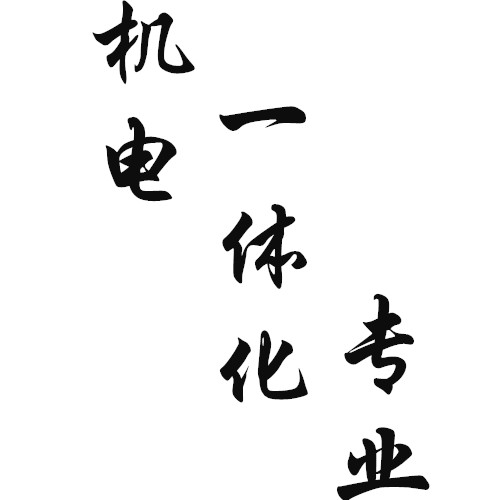 机电
一体化
专业